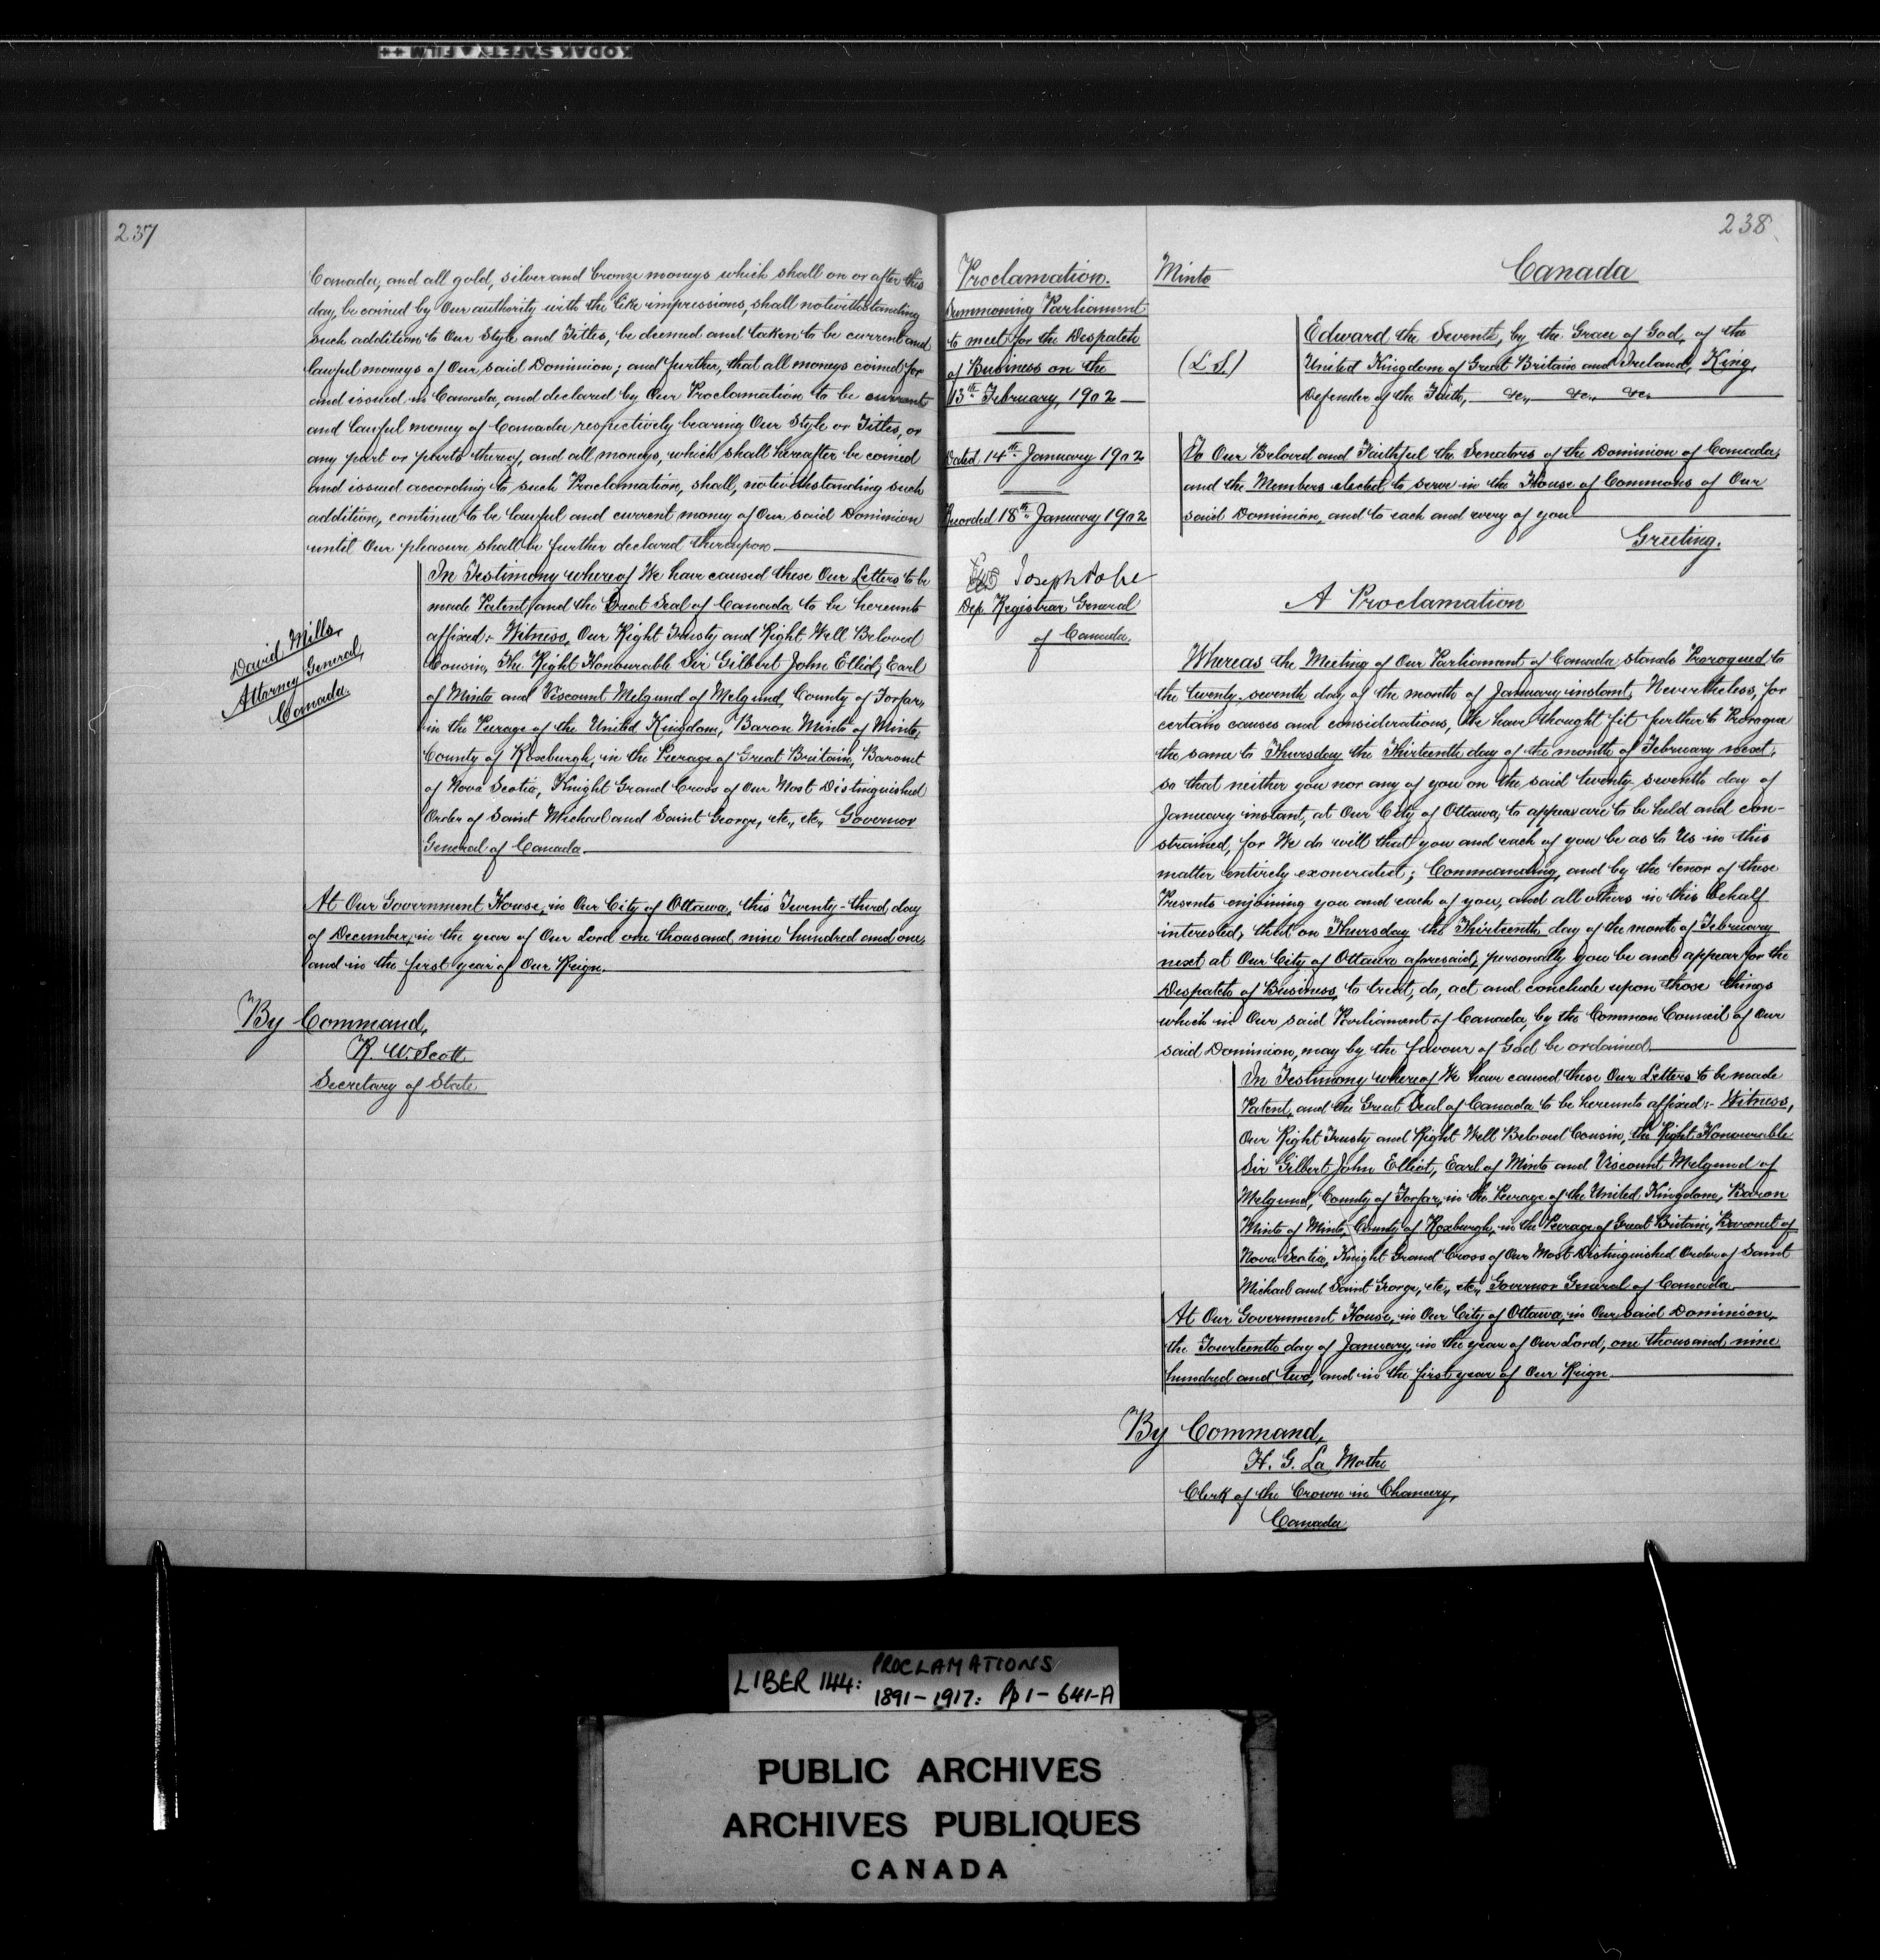 KODAK SAFETY FILM ++
237
Canada, and all gold, silver and bronze moneys which shall on or after this
day, be coined by Our authority with the like impressions, shall notwithstanding
such addition to Our Style and Titles, be deemed and taken to be current and
lawful moneys of Our said Dominion; and further, that all moneys coined for
and issued in Canada, and declared by Our Proclamation to be current
and lawful money of Canada respectively bearing Our Style or Titles, or
any part or parts thereof, and all moneys, which shall hereafter be coined
and issued according to such Proclamation, shall, notwithstanding such
addition, continue to be lawful and current money of Our said Dominion
until Our pleasure shall be further declared thereupon.
In Testimony whereof We have caused these Our Letters to be
made Patent, and the Great Seal of Canada to be hereunto
affixed:- Witness, Our Right Trusty and Right Well Beloved
Cousin, The Right Honourable Sir Gilbert John Elliot, Earl
of Minto and Viscount Melgund of Melgund, County of Forfar,
in the Peerage of the United Kingdom, Baron Minto of Minto,
County of Roxburgh, in the Peerage of Great Britain, Baronet
of Nova Scotia, Knight Grand Cross of Our Most Distinguished
Order of Saint Michael and Saint George, etc., etc., Governor
General of Canada.
David Mills,
Attorney General,
Canada.
At Our Government House, in Our City of Ottawa, this Twenty-third day
of December, in the year of Our Lord one thousand nine hundred and one,
and in the first year of Our Reign.
By Command,
R. W. Scott
Secretary of State
238
Proclamation.
Summoning Parliament
to meet for the Despatch
of Business on the
13th February, 1902
Dated 14th January 1902
Recorded 18th January 1902
Joseph Pope
Dep. Registrar General
of Canada.
Minto
Canada
(L.S.)
Edward the Seventh, by the Grace of God, of the
United Kingdom of Great Britain and Ireland, King,
Defender of the Faith, &c., &c., &c.
To Our Beloved and Faithful the Senators of the Dominion of Canada,
and the Members elected to serve in the House of Commons of Our
said Dominion, and to each and every of you
Greeting.
A Proclamation
Whereas the Meeting of Our Parliament of Canada stands Prorogued to
the twenty-seventh day of the month of January instant, Nevertheless, for
certain causes and considerations, We have thought fit further to Prorogue
the same to Thursday the Thirteenth day of the month of February next,
so that neither you nor any of you on the said twenty-seventh day of
January instant, at Our City of Ottawa, to appear are to be held and con-
strained, for We do will that you and each of you be as to Us in this
matter entirely exonerated; Commanding, and by the tenor of these
Presents enjoining you and each of you, and all others in this behalf
interested, that on Thursday the Thirteenth day of the month of February
next at Our City of Ottawa aforesaid, personally you be and appear for the
Despatch of Business, to treat, do, act and conclude upon those things
which in Our said Parliament of Canada, by the Common Council of Our
said Dominion, may by the favour of God be ordained.
In Testimony whereof We have caused these Our Letters to be made
Patent, and the Great Seal of Canada to be hereunto affixed:- Witness,
Our Right Trusty and Right Well Beloved Cousin, the Right Honourable
Sir Gilbert John Elliot, Earl of Minto and Viscount Melgund of
Melgund, County of Forfar, in the Peerage of the United Kingdom, Baron
Minto of Minto, County of Roxburgh, in the Peerage of Great Britain, Baronet of
Nova Scotia, Knight Grand Cross of Our Most Distinguished Order of Saint
Michael and Saint George, etc., etc., Governor General of Canada.
At Our Government House, in Our City of Ottawa, in Our said Dominion,
the Fourteenth day of January, in the year of Our Lord, one thousand nine
hundred and two, and in the first year of Our Reign.
By Command,
H. G. La Mothe
Clerk of the Crown in Chancery,
Canada
LIBER 144: PROCLAMATIONS
1891-1917: Pp 1-641-A
PUBLIC ARCHIVES
ARCHIVES PUBLIQUES
CANADA